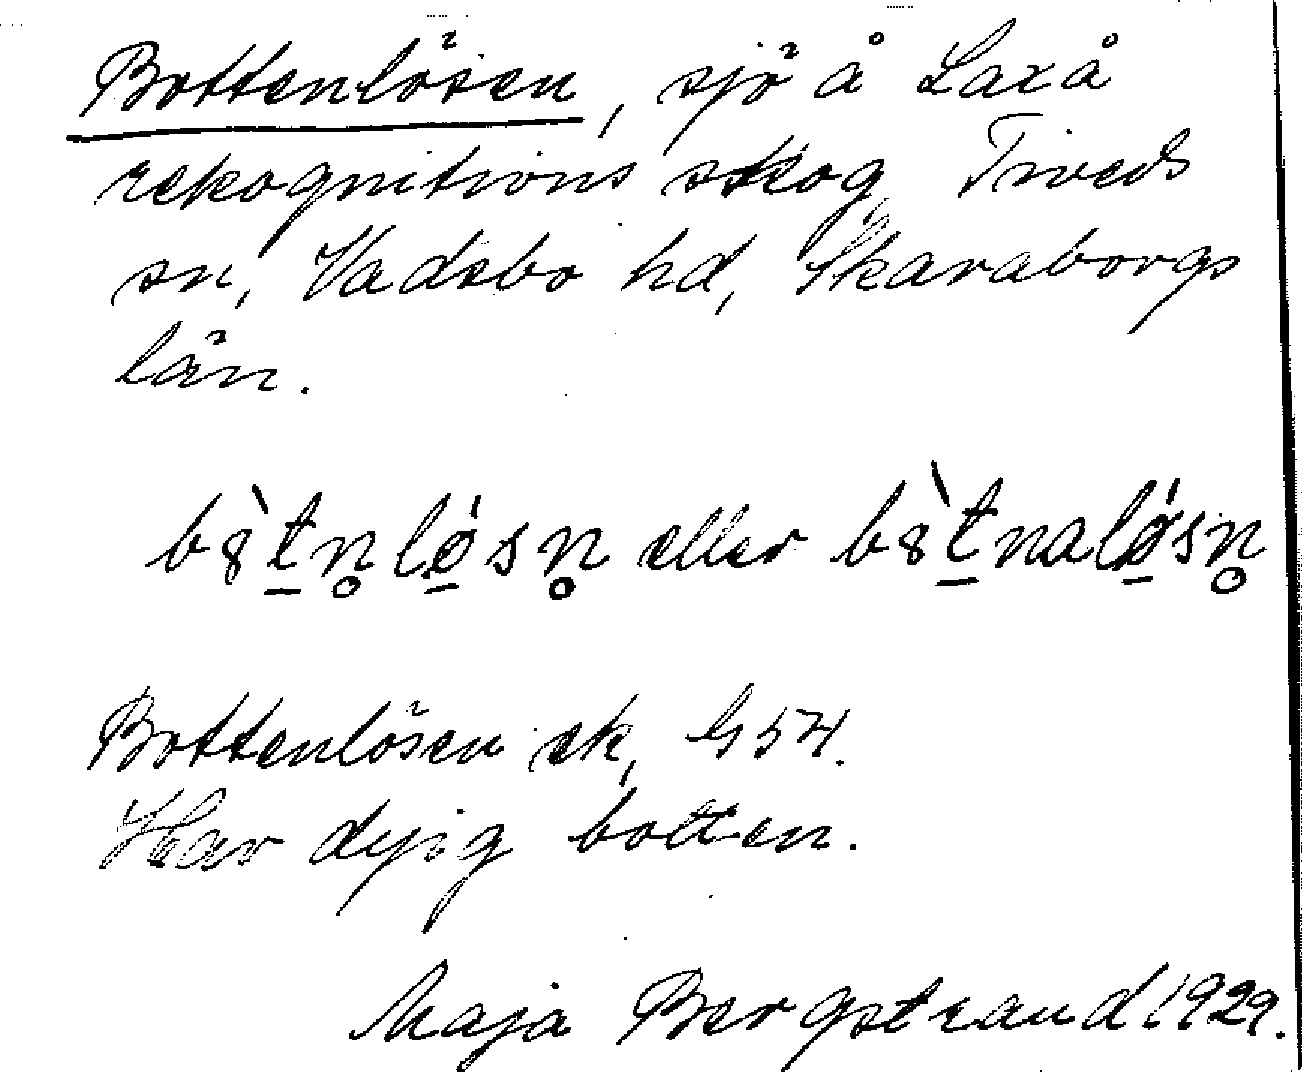 Bottenlösen, sjö å Laxå
rekognitions skog Tiveds
sn, Vadsbo hd, Skaraborgs
län.
eller
Bottenlösen ek, G 54.
Har dyig botten.
Maja Bergstrand 1929.